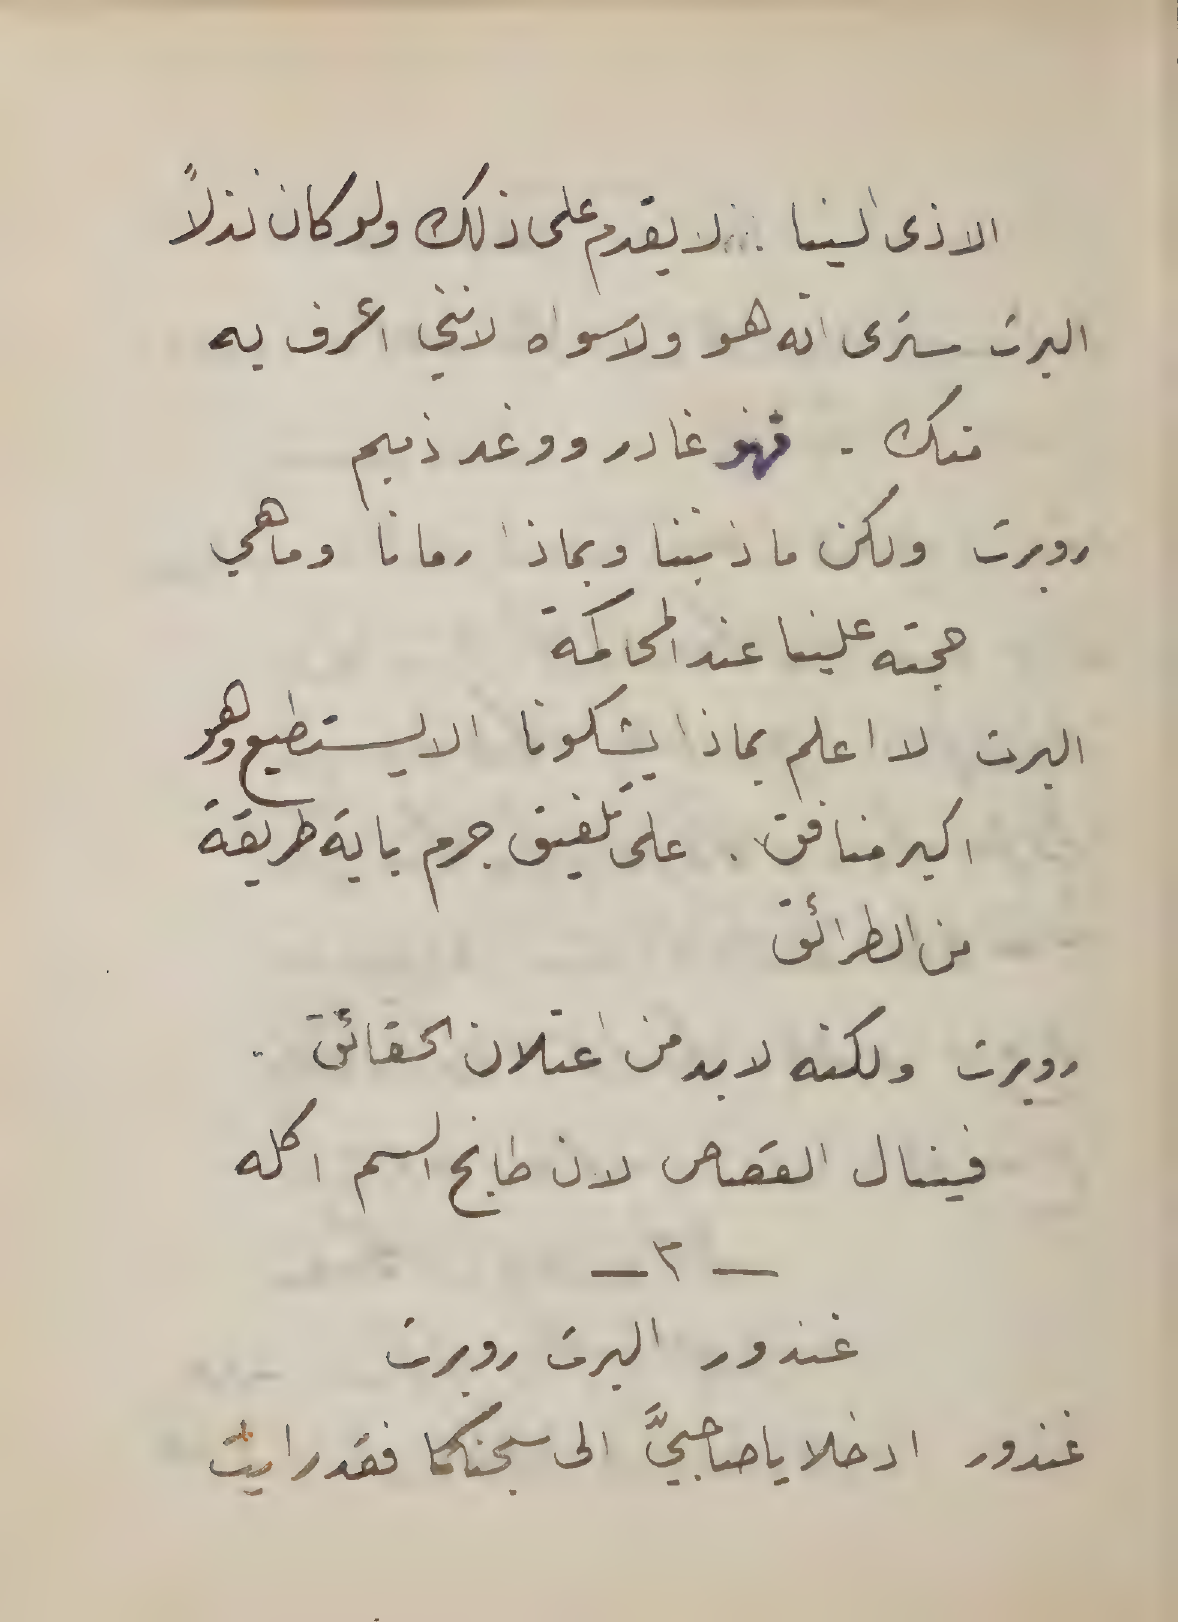 الاذى الينا . لا يقدم على ذلك ولو كان نذلاً
البرت سترى انه هو ولا سواه لانني اعرف به
منك . فهو غادر ووغد ذميم
روبرت ولكن ما ذنبنا وبماذا رمانا وما هي
حجته علينا عند المحاكمة
البرت لا اعلم بماذا يشكونا الا يستطيع وهو
اكبر منافق . على تلفيق جرم باية طريقة
من الطرائق
روبرت ولكنه لا بد من اعتلان الحقائق .
فينال القصاص لان طابخ السم اكله
— ٣ —
غندور البرت روبرت
غندور ادخلا يا صاحبيَّ الى سجنكما فقد رايت